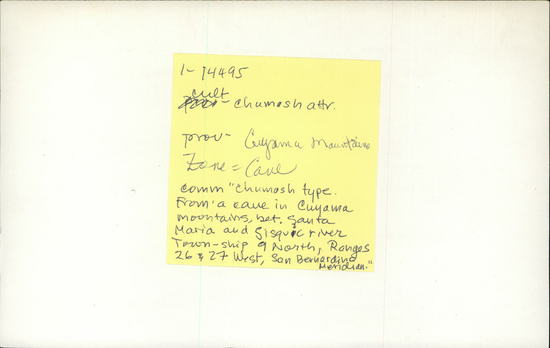 1-14495
cult
- Chumosh attr.
prov- Cuyama Mountains
Zone = Cave
comm "Chumosh type.
From a cave in Cuyama
mountains, bet. Santa
Maria and Sisquoc river
Town-ship 9 North, Ranges
26 & 27 West, San Bernardino
Meridian."